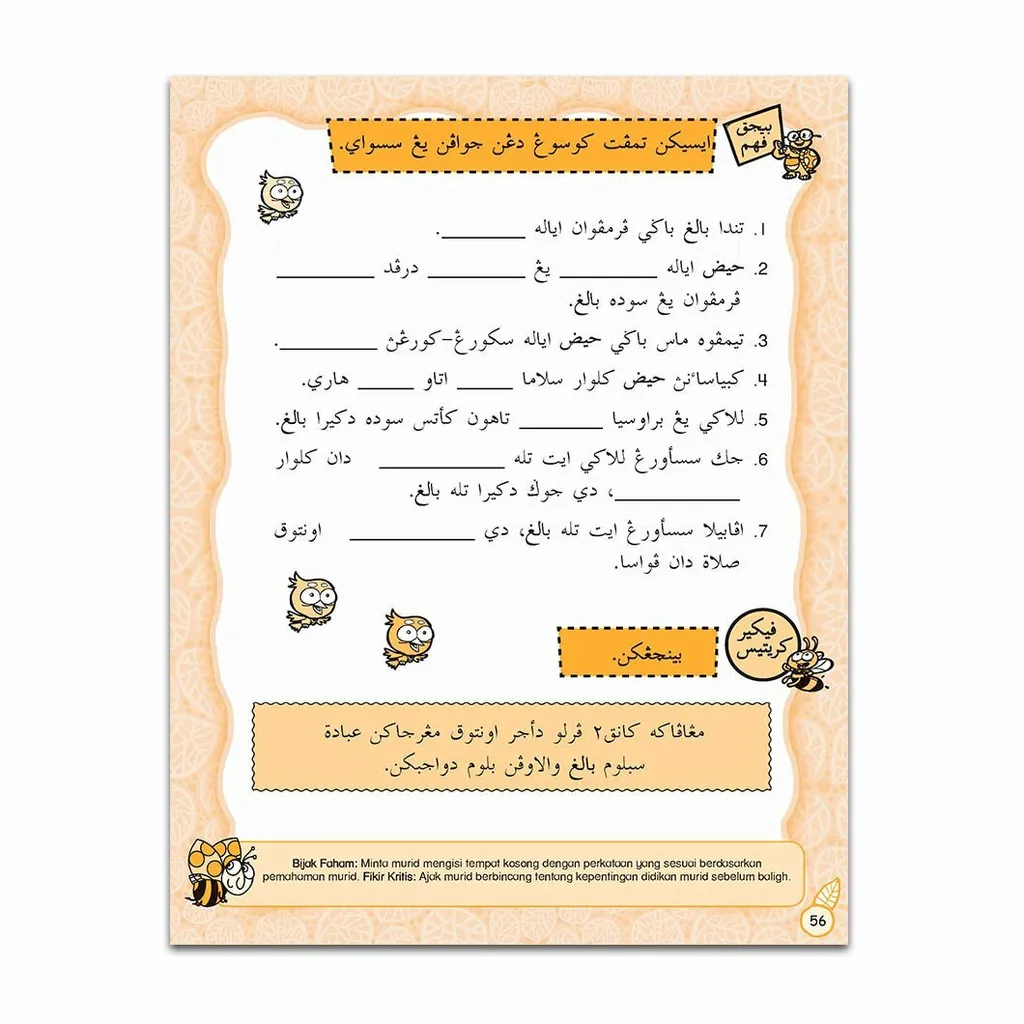 بيجق
فهم
ايسيکن تمڤت كوسوڠ دڠن جواڤن يڠ سسواي.
1. تندا بالغ باݢي ڤرمڤوان اياله ________.
2. حيض اياله __________ يڠ __________ درڤد __________
ڤرمڤوان يڠ سوده بالغ.
3. تيمڤوه ماس باݢي حيض اياله سكورڠ-كورڠڽ __________.
4. كبياساءنڽ حيض كلوار سلاما ______ اتاو ______ هاري.
5. للاكي يڠ براوسيا ________ تاهون كأتس سوده دكيرا بالغ.
6. جك سسأورڠ للاكي ايت تله ____________ دان كلوار
____________، دي جوݢ دكيرا تله بالغ.
7. اڤابيلا سسأورڠ ايت تله بالغ، دي ____________ اونتوق
صلاة دان ڤواسا.
فيكير
كريتيس
بينچڠكن.
مڠاڤاكه كانق٢ ڤرلو دأجر اونتوق مڠرجاكن عبادة
سبلوم بالغ والاوڤن بلوم دواجبكن.
Bijak Faham: Minta murid mengisi tempat kosong dengan perkataan yang sesuai berdasarkan
pemahaman murid. Fikir Kritis: Ajak murid berbincang tentang kepentingan didikan murid sebelum baligh.
56